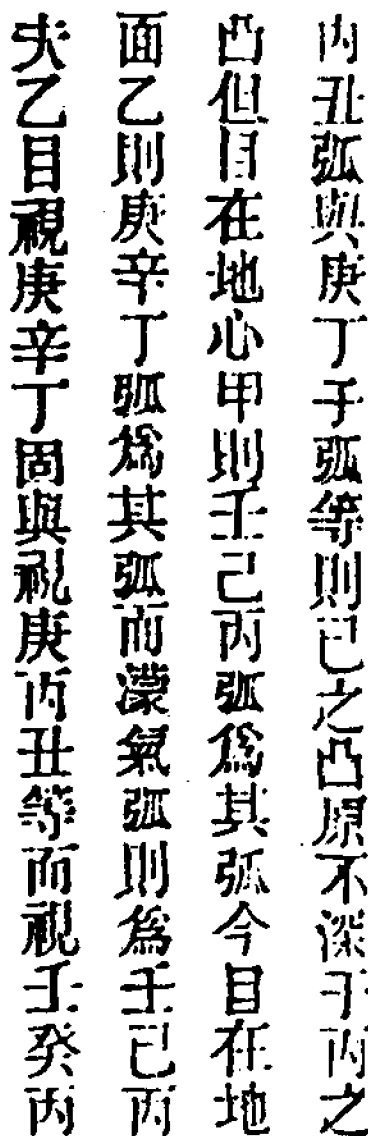 丙丑弧與庚丁子弧等則己之凸原不深于丙之
凸但目在地心甲則壬己丙弧為其弧今目在地
面乙則庚辛丁弧為其弧而濛氣弧則為壬己丙
夫乙目視庚辛丁固與視庚丙丑等而視壬癸丙